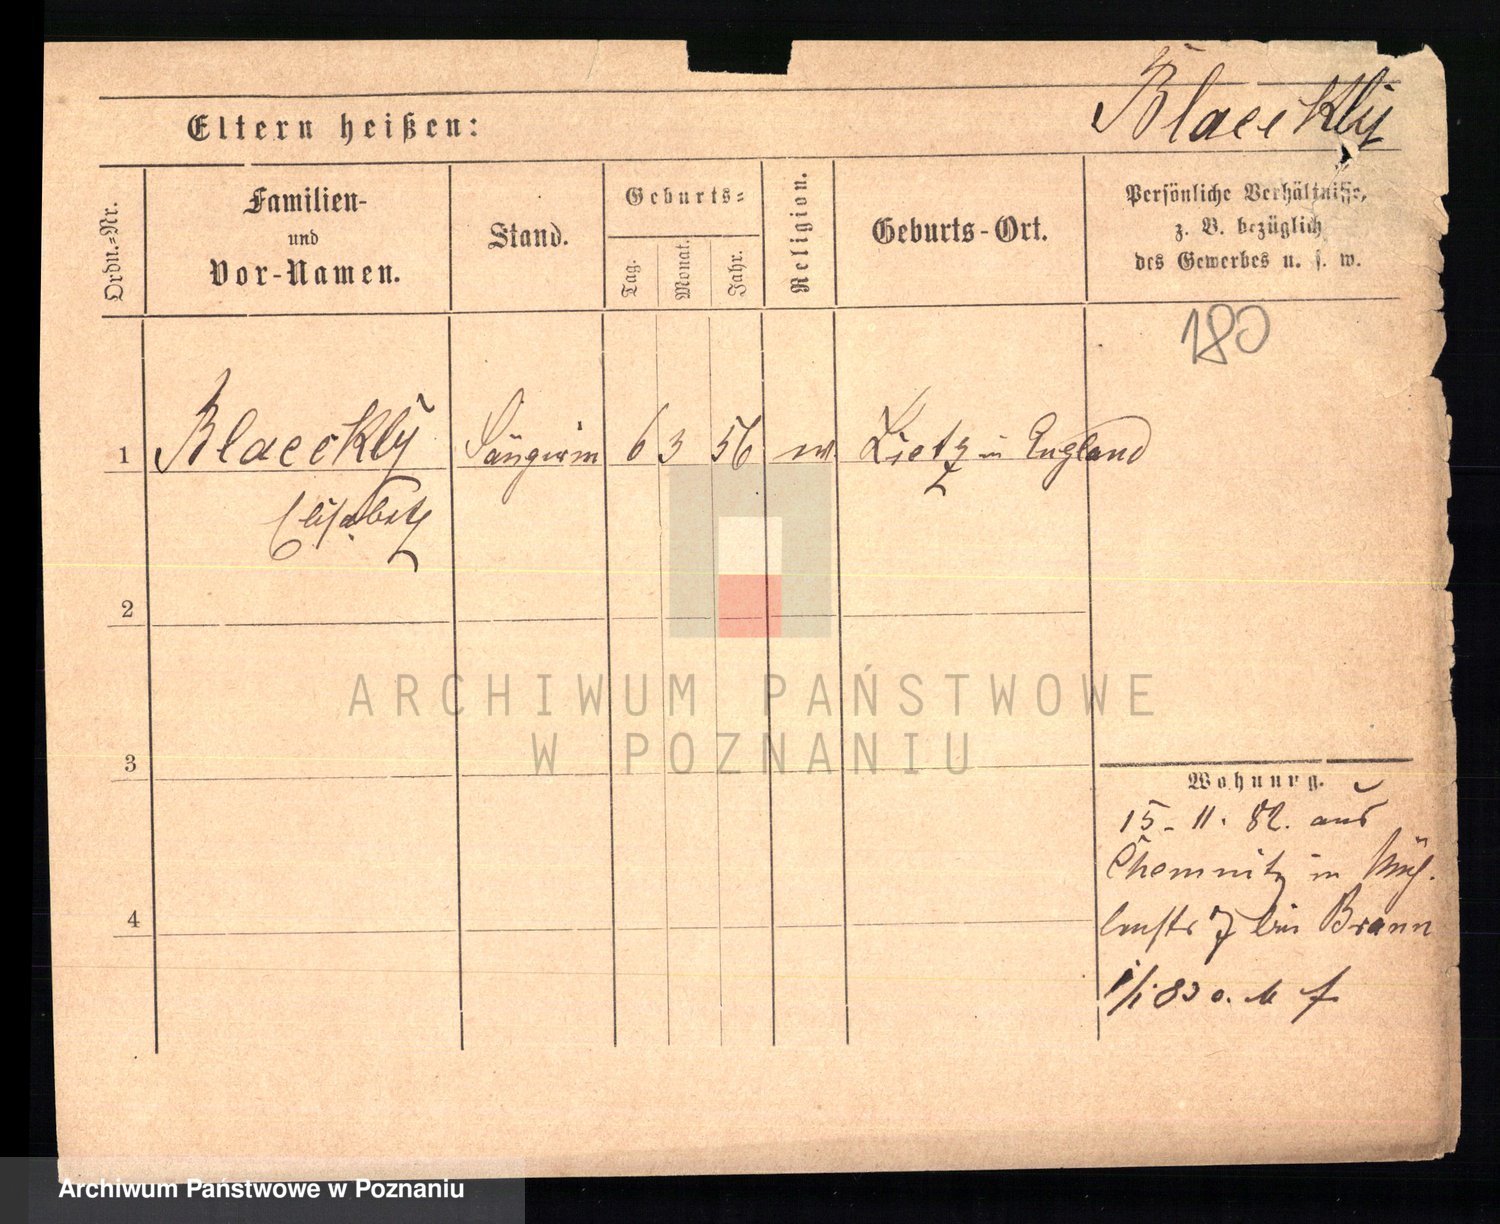 Blaeckly
Eltern heißen:
Ordn.=Nr.
Familien-
und
Vor-Namen.
Stand.
Geburts=
Tag.
Monat.
Jahr.
Religion.
Geburts-Ort.
Persönliche Verhältnisse,
z. B. bezüglich
des Gewerbes u. s. w.
180
1 Blaeckly Sängerin 6 3 56 in England
Elisabeth
2
ARCHIWUM PAŃSTWOWE
W POZNANIU
3
Wohnung.
15-11. 82. aus
Chemnitz in Müh.
lenstr 7 bei Braun
1/1 83 o.
4
Archiwum Państwowe w Poznaniu